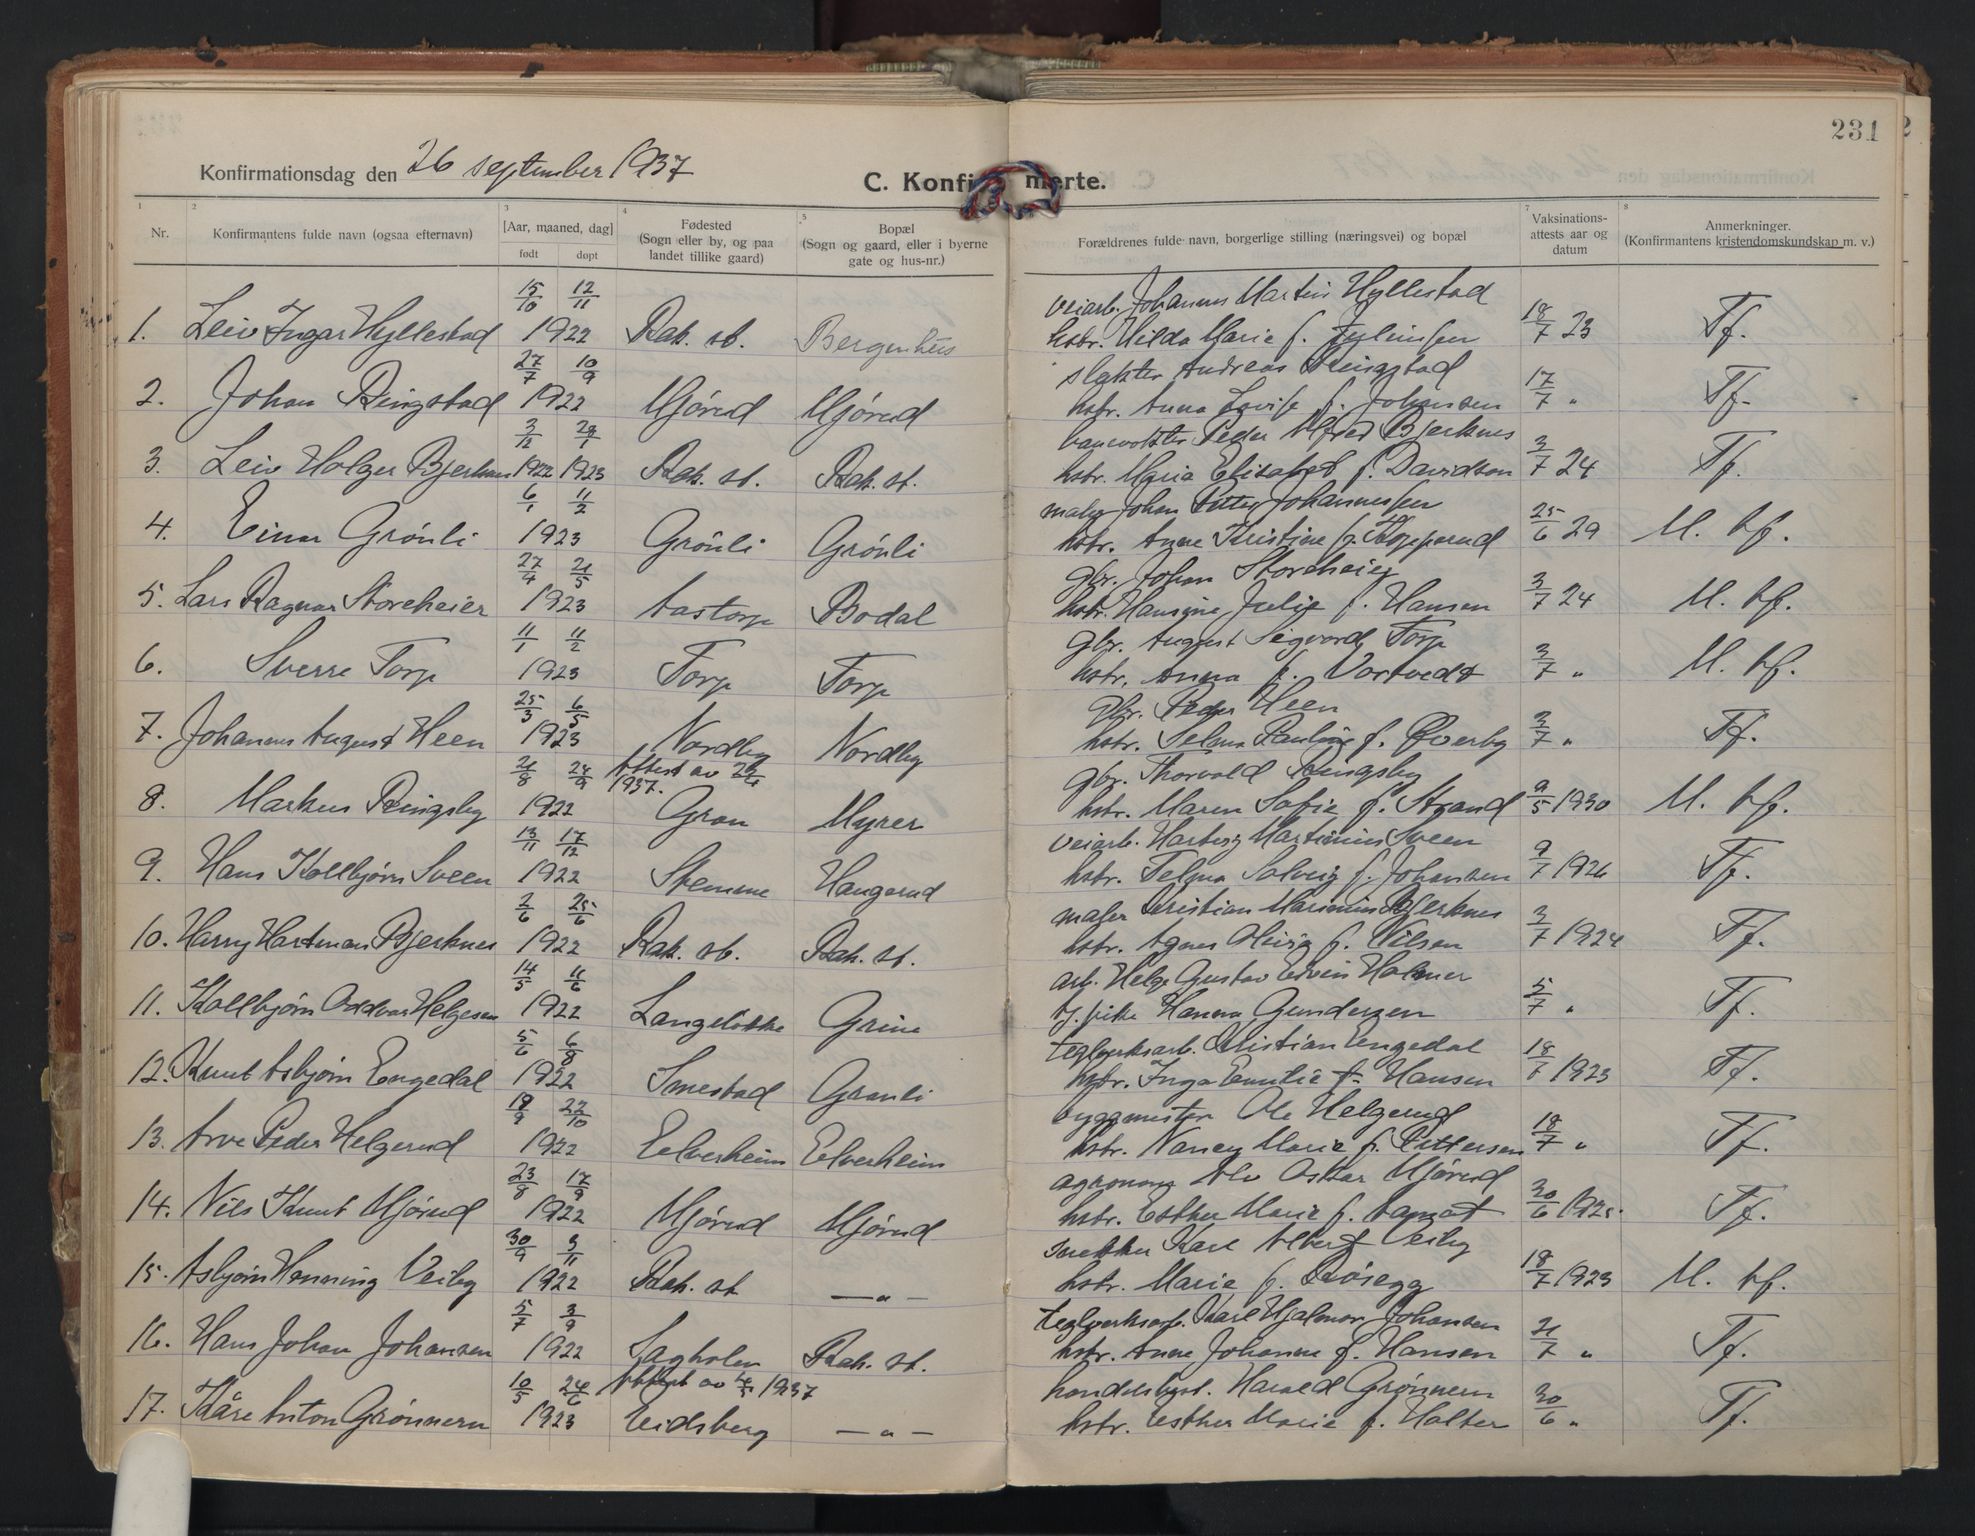 231
Konfirmationsdag den 26 september 1937
C. Konfi merte.
1 2 3 4 5 7 8
Nr.
Konfirmantens fulde navn (ogsaa efternavn)
[Aar, maaned, dag]
født døpt
Fødested
(Sogn eller by, og paa
landet tillike gaard)
Bopæl
(Sogn og gaard, eller i byerne
gate og hus-nr.)
Forældrenes fulde navn, borgerlige stilling (næringsvei) og bopæl
Vaksinations-
attests aar og
datum
Anmerkninger.
(Konfirmantens kristendomskundskap m. v.)
15/10 12/11 veiarb. Johannes Martin Hyllestad
1. Leiv Ingar Hyllestad 1922 Rak. st. Bergenhus hstr. Hilda Marie f. Juliussen 18/7 23 Tf.
27/7 10/9 slakter Andreas Ringstad
2. Johan Ringstad 1922 Mjørud Mjørud hstr. Anna Lovise f. Johansen 17/7 " Tf.
3/12 28/1 banevokter Peder Alfred Bjerknes
3. Leiv Holger Bjerknes 1922 1923 Rak. st. Rak. st. hstr. Maria Elisabet f. Davidson 3/7 24 Tf.
6/1 11/2 maler Johan Petter Johannessen
4. Einar Grønli 1923 Grønli Grønli hstr. Anne Kristine f. 25/6 29 M. tf.
27/4 21/5 gbr. Johan Storeheier
5. Lars Ragnar Storeheier 1923 Aastorp Bodal hstr. Hansine Julie f. Hansen 3/7 24 M. tf.
11/1 11/2 gbr. August Sigvard Torp
6. Sverre Torp 1923 Torp Torp hstr. Anna f. Vortvedt 3/7 " M. tf.
25/3 6/5 gbr. Peder Heen
7. Johannes August Heen 1923 Nordby Nordby hstr. Selma Pauline f. Øverby 3/7 " Tf.
21/8 24/9 Attest av 1937. gbr. Thorvald Ringsby
8. Markus Ringsby 1922 Gran Myrer hstr. Maren Sofie f. Strand 9/5 1930 M. tf.
13/11 17/12 veiarb. Hartvig Martinius Sveen
9. Hans Kolbjørn Sveen 1922 Stemme Haugerud hstr. Telma Solveig f. Johansen 9/7 1926 Tf.
2/6 25/6 maler Kristian Marinius Bjerknes
10. Harry Hartman Bjerknes 1922 Rak. st. Rak. st. hstr. Agnes f. Nilsen 3/7 1924 Tf.
14/5 11/6 arb. Helge Gustav Edvin Holmer
11. Kollbjørn Oddvar Helgesen 1922 Langeløkke Grine tj. pike Hanna Gundersen 5/7 " Tf.
5/6 6/8 teglverksarb. Kristian Engedal
12. Knut Asbjørn Engedal 1922 Smestad Granli hstr. Inga Emilie f. Hansen 18/7 1923 Tf.
19/9 22/10 byggmester Ole Helgerud
13. Arve Peder Helgerud 1922 Eelverheim Eelverheim hstr. Nancy Marie f. Pettersen 18/7 " Tf.
23/8 17/9 agronom Alv Oskar Mjørud
14. Nils Knut Mjørud 1922 Mjørud Mjørud hstr. Esther Marie f. 30/6 1925. Tf.
30/9 5/11 snekker Karl Albert Veiby
15. Asbjørn Henning Veiby 1922 Rak. st — " — hstr. Marie f. Røsegg 18/7 1923 M. tf.
5/7 3/9 teglverksarb. Karl Hjalmar Johansen
16. Hans Johan Johansen 1922 Sagholen Rak. st. hstr. Anne Johanne f. Hansen 21/7 " Tf.
10/5 24/6 Attest av 1937 handelsbest. Harald Grønnern
17. Kåre Anton Grønnern 1923 Eidsberg — " — hstr. Esther Marie f. Halter 30/6 " Tf.